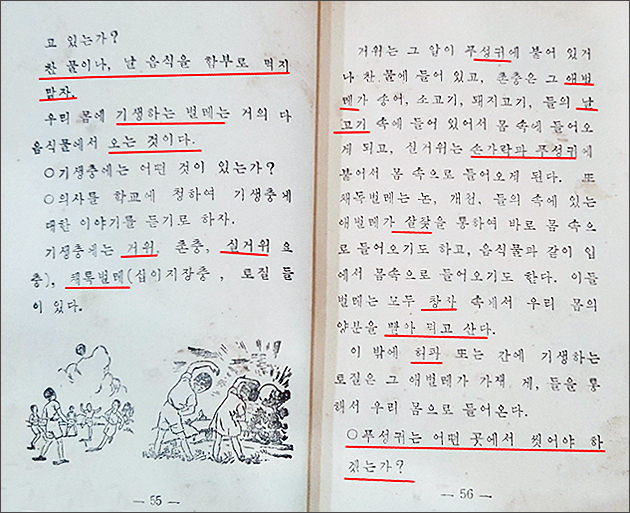 고 있는가?
찬 물이나, 날 음식을 함부로 먹지
말자.
우리 몸에 기생하는 벌레는 거의 다
음식물에서 오는 것이다.
○기생충에는 어떤 것이 있는가?
○의사를 학교에 청하여 기생충에
대한 이야기를 듣기로 하자.
기생충에는 거위, 촌충, 실거위 요
충), 채독벌레(십이지장충, 토질 들
이 있다.
— 55 —
거위는 그 알이 푸성귀에 붙어 있거
나 찬 물에 들어 있고, 촌충은 그 애벌
레가 송어, 소고기, 돼지고기, 들의 날
고기 속에 들어 있어서 몸 속에 들어오
게 되고, 실거위는 손가락과 푸성귀에
붙어서 몸 속으로 들어오게 된다. 또
채독벌레는 논, 개천, 들의 속에 있는
애벌레가 살갗을 통하여 바로 몸 속으
로 들어오기도 하고, 음식물과 같이 입
에서 몸속으로 들어오기도 한다. 이들
벌레는 모두 창자 속에서 우리 몸의
양분을 빨아 먹고 산다.
이 밖에 허파 또는 간에 기생하는
토질은 그 애벌레가 가재 게, 들을 통
해서 우리 몸으로 들어온다.
○푸성귀는 어떤 곳에서 씻어야 하
겠는가?
— 56 —